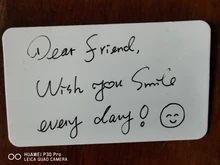 Dear friend,
Wish you Smile
every day!
HUAWEI P30 Pro
LEICA QUAD CAMERA